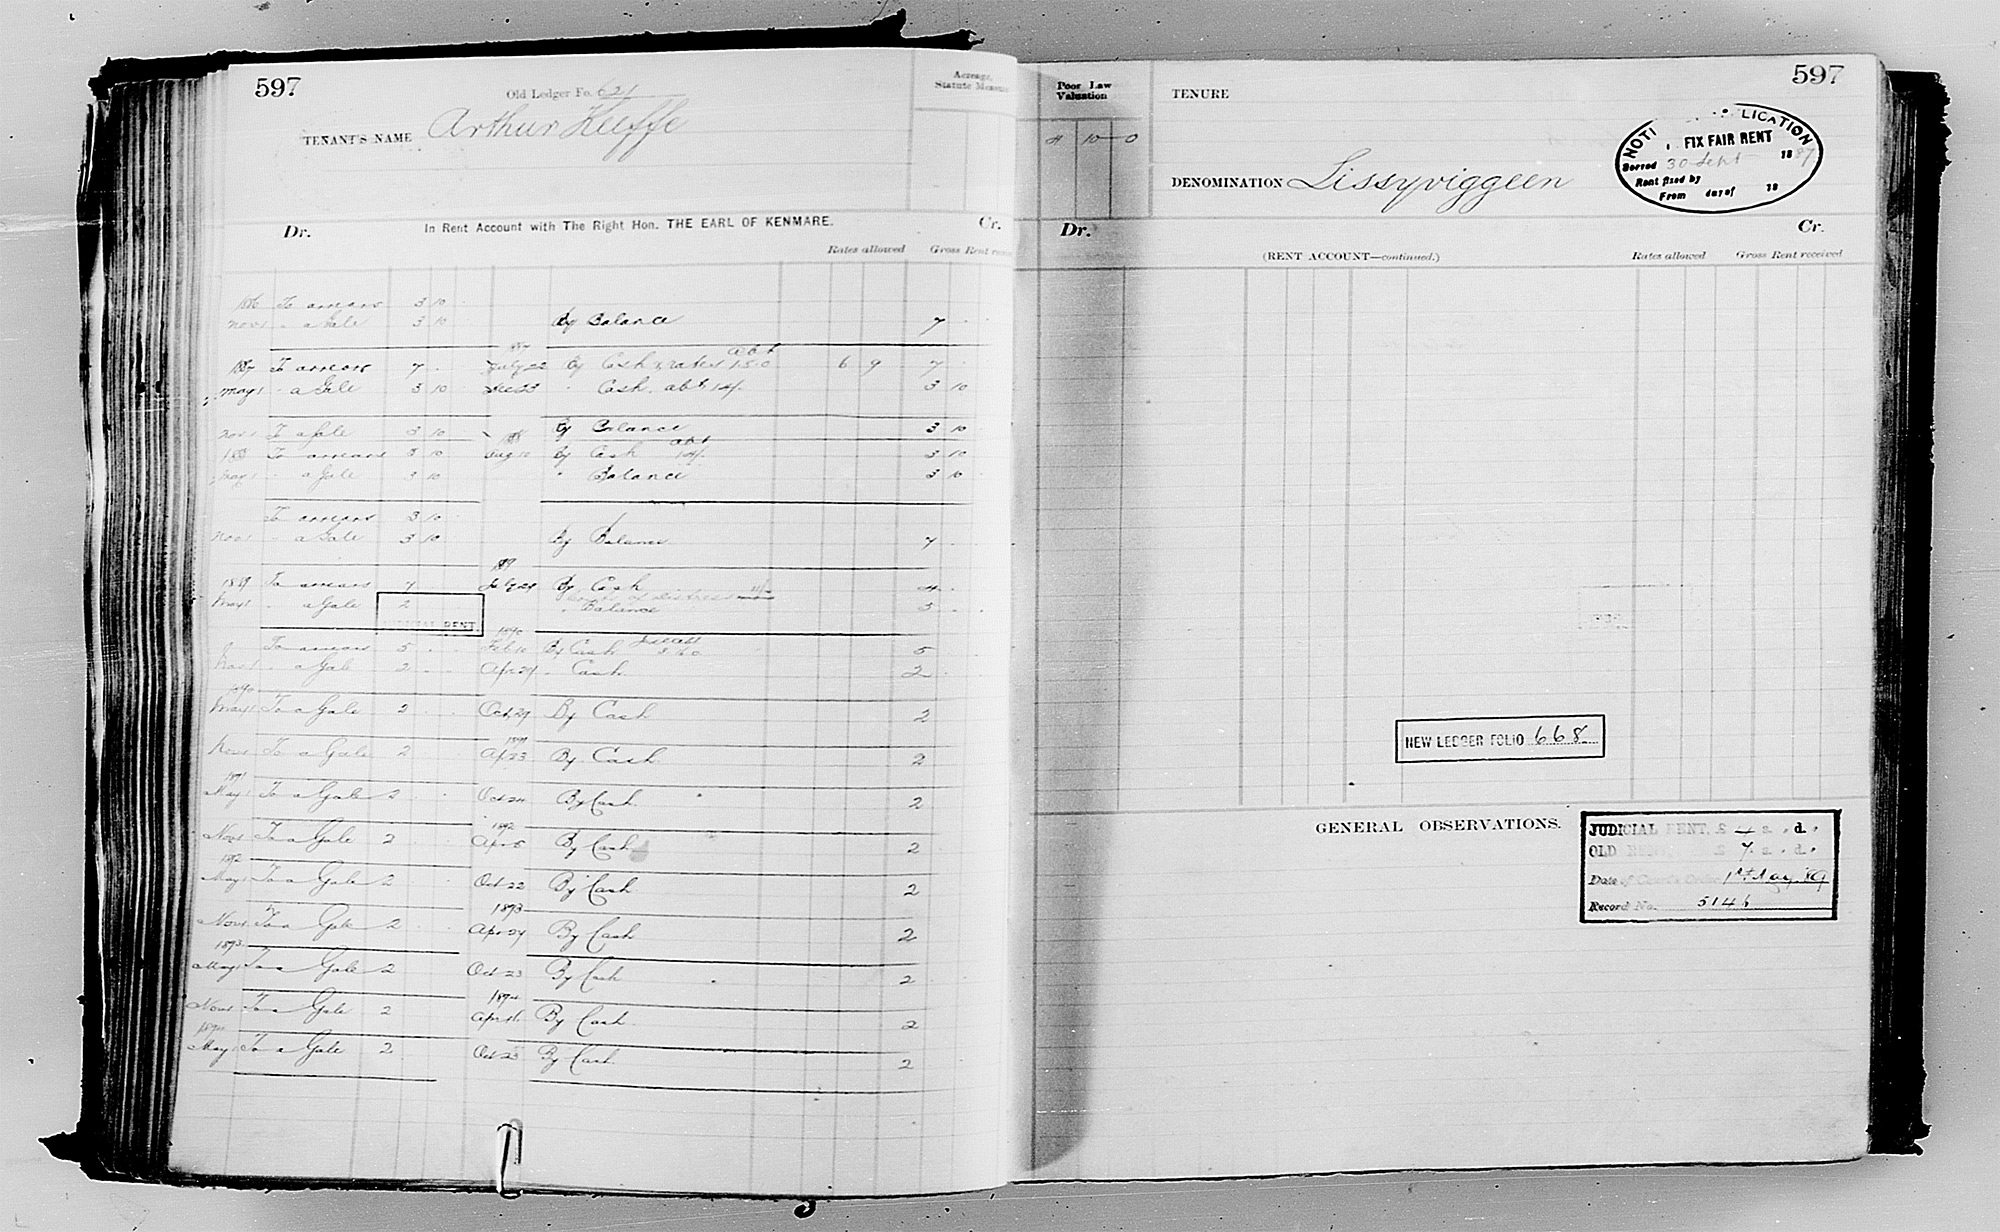 597
Old Ledger Fo. 621
TENANT'S NAME Arthur Keeffe
Acreage,
Statute Measure
Dr. In Rent Account with The Right Hon. THE EARL OF KENMARE. Cr.
Rates allowed Gross Rent
1886 To arrears 3 10
Nov 1 " a Gale 3 10 By Balance 7
1887
1887 To arrears 7 July 22 By Cash & rates abt 15.0 6 9 7
May 1 " a Gale 3 10 Dec 23 " Cash abt 14/- 3 10
Nov 1 To a Gale 3 10 By Balance 3 10
1888
1888 To arrears 3 10 Aug 10 By Cash abt 14/- 3 10
May 1 " a Gale 3 10 " Balance 3 10
To arrears 3 10
Nov 1 " a Gale 3 10 By Balance 7
1889
1889 To arrears 7 July 29 By Cash 4
May 1 " a Gale 2 " Balance 5
RENT
1890
To arrears 5 Feb 10 By Cash 5
Nov 1 " a Gale 2 Apr 29 " Cash 2
1890
May 1 To a Gale 2 Oct 29 By Cash 2
1891
Nov 1 To a Gale 2 Ap 23 By Cash 2
1891
May 1 To a Gale 2 Oct 24 By Cash 2
1892
Nov 1 To a Gale 2 Apr 5 By Cash 2
1892
May 1 To a Gale 2 Oct 22 By Cash 2
1893
Nov 1 To a Gale 2 Apr 24 By Cash 2
1893
May 1 To a Gale 2 Oct 23 By Cash 2
1894
Nov 1 To a Gale 2 Apr 11 By Cash 2
1894
May 1 To a Gale 2 Oct 23 By Cash 2
597
Poor Law
Valuation
4 10 0
TENURE
DENOMINATION Lissyviggeen
FIX FAIR RENT
Served 30 Sept 1887
Rent fixed by
From day of 18
Dr. Cr.
(RENT ACCOUNT—continued.) Rates allowed Gross Rent received
NEW LEDGER FOLIO 668
GENERAL OBSERVATIONS.
JUDICIAL RENT, £ 4 s. d.
OLD RENT, £ 7 s. d.
Date of Court's Order 1st May '89
Record No. 5146